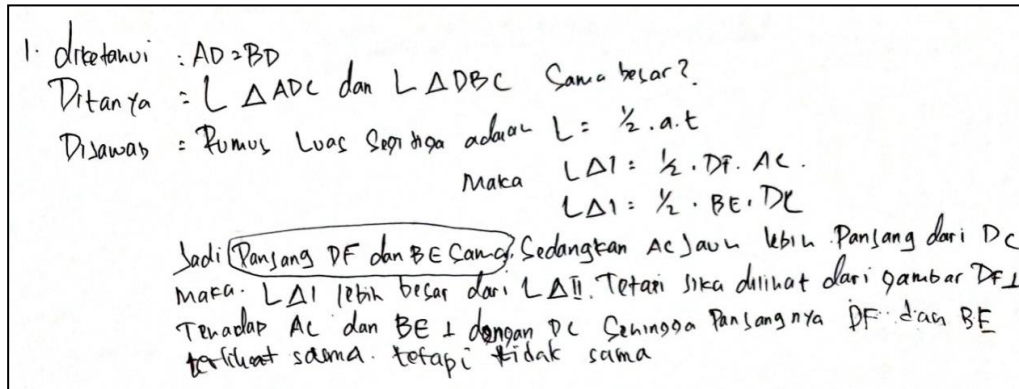 1. diketahui : AD = BD
Ditanya : L △ ADC dan L △ DBC Sama besar?
Dijawab : Rumus Luas Segitiga adalah L = ½ . a . t
Maka L△I = ½ . DF . AC .
L△I = ½ . BE . DC
Jadi Panjang DF dan BE Sama. Sedangkan AC Jauh lebih Panjang dari DC
Maka. L△I lebih besar dari L△II. Tetapi jika dilihat dari gambar DF⊥
Terhadap AC dan BE ⊥ dengan DC Sehingga Panjangnya DF dan BE
terlihat sama. tetapi tidak sama